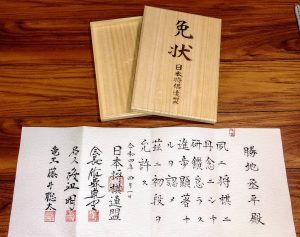 免状
日本将棋連盟
勝地丞平殿
夙ニ将棋ニ
丹念ニシテ
研鑽怠ラス
進歩顕著ナ
ルヲ認メ
茲ニ初段ヲ
允許ス
令和四年四月一日
日本将棋連盟
会長 佐藤康光
名人 渡辺明
竜王 藤井聡太